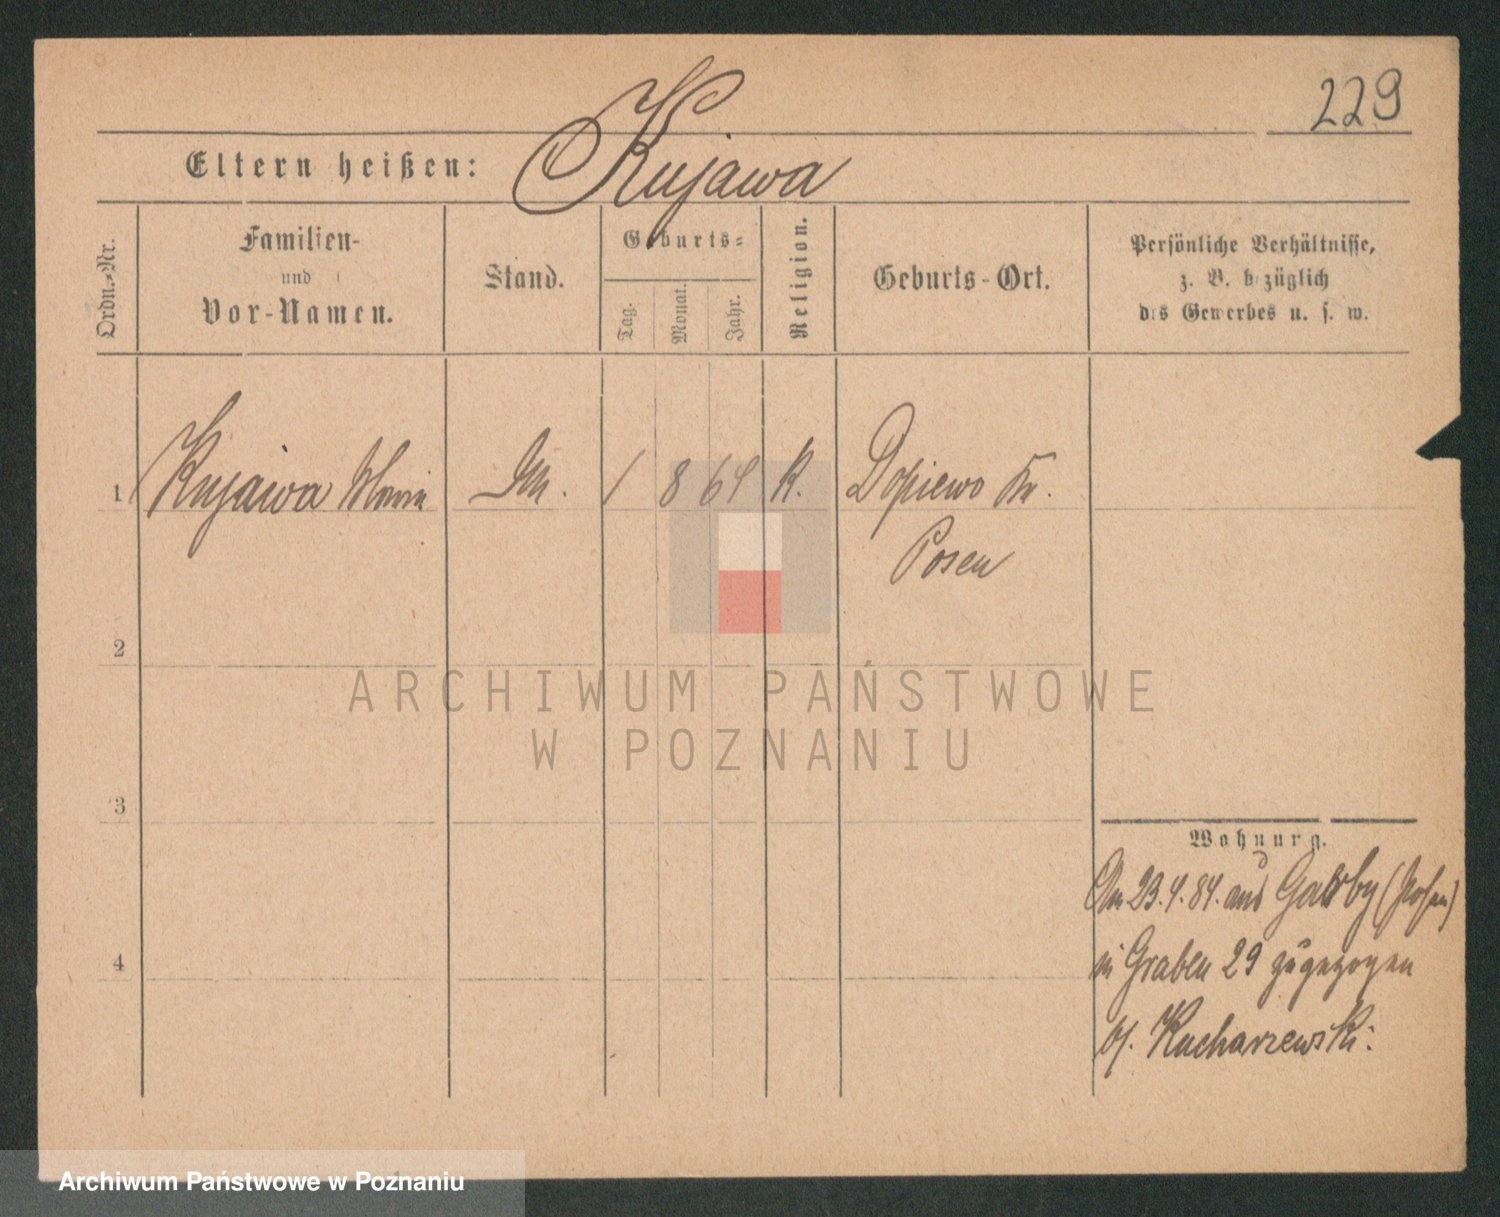 229
Eltern heißen: Kujawa
Ordn.-Nr.
Familien-
und
Vor-Namen.
Stand.
Geburts-
Tag.
Monat.
Jahr.
Religion.
Geburts-Ort.
Persönliche Verhältnisse,
z. B. bezüglich
des Gewerbes u. s. w.
1 Kujawa Maria 1 8 64 K. Dopiewo Kr.
Posen
2
ARCHIWUM PAŃSTWOWE
W POZNANIU
3
Wohnung.
Am 23.4.84. aus (Posen)
in Graben 29 zugezogen
bf. Kucharzewski.
4
Archiwum Państwowe w Poznaniu